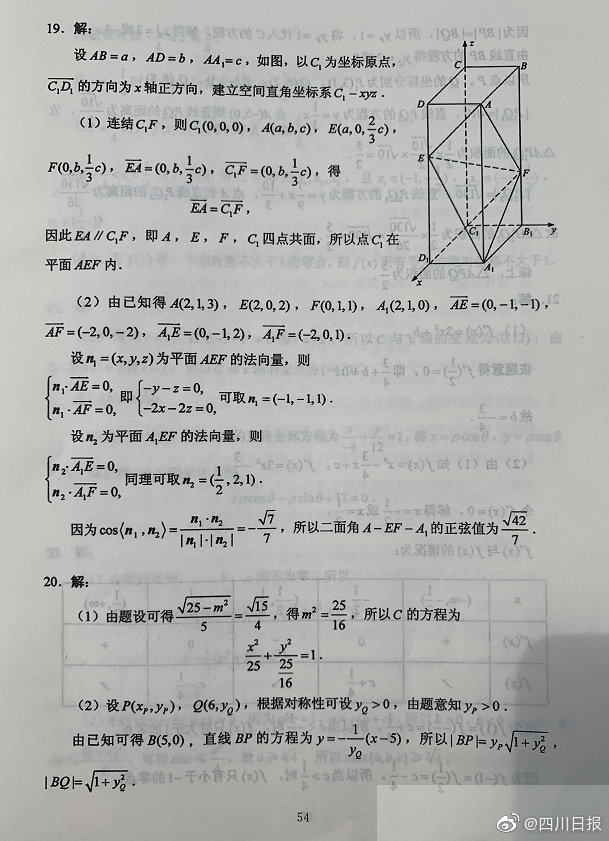 19．解：
设 AB = a， AD = b， AA₁ = c，如图，以 C₁ 为坐标原点，
$\overrightarrow{C_1D_1}$ 的方向为 x 轴正方向，建立空间直角坐标系 C₁ - xyz．
（1）连结 C₁F，则 C₁(0,0,0)， A(a,b,c)， E(a,0,$\frac{2}{3}$c)，
F(0,b,$\frac{1}{3}$c)， $\overrightarrow{EA}$ = (0,b,$\frac{1}{3}$c)， $\overrightarrow{C_1F}$ = (0,b,$\frac{1}{3}$c)，得
$\overrightarrow{EA}$ = $\overrightarrow{C_1F}$，
因此 EA // C₁F，即 A， E， F， C₁ 四点共面，所以点 C₁ 在
平面 AEF 内．
z
C
B
D
A
E
F
C₁
B₁
y
D₁
A₁
x
（2）由已知得 A(2,1,3)， E(2,0,2)， F(0,1,1)， A₁(2,1,0)， $\overrightarrow{AE}$ = (0,-1,-1)，
$\overrightarrow{AF}$ = (-2,0,-2)， $\overrightarrow{A_1E}$ = (0,-1,2)， $\overrightarrow{A_1F}$ = (-2,0,1)．
设 n₁ = (x,y,z) 为平面 AEF 的法向量，则
$\begin{cases} n_1\cdot\overrightarrow{AE}=0, \\ n_1\cdot\overrightarrow{AF}=0, \end{cases}$ 即 $\begin{cases} -y-z=0, \\ -2x-2z=0, \end{cases}$ 可取 n₁ = (-1,-1,1)．
设 n₂ 为平面 A₁EF 的法向量，则
$\begin{cases} n_2\cdot\overrightarrow{A_1E}=0, \\ n_2\cdot\overrightarrow{A_1F}=0, \end{cases}$ 同理可取 n₂ = ($\frac{1}{2}$,2,1)．
因为 cos⟨n₁,n₂⟩ = $\frac{n_1\cdot n_2}{|n_1|\cdot|n_2|}$ = $-\frac{\sqrt{7}}{7}$，所以二面角 A-EF-A₁ 的正弦值为 $\frac{\sqrt{42}}{7}$．
20．解：
（1）由题设可得 $\frac{\sqrt{25-m^2}}{5}=\frac{\sqrt{15}}{4}$，得 $m^2=\frac{25}{16}$，所以 C 的方程为
$\frac{x^2}{25}+\frac{y^2}{\frac{25}{16}}=1$．
（2）设 P(x_P,y_P)， Q(6,y_Q)，根据对称性可设 y_Q > 0，由题意知 y_P > 0．
由已知可得 B(5,0)，直线 BP 的方程为 $y=-\frac{1}{y_Q}(x-5)$，所以 $|BP|=y_P\sqrt{1+y_Q^2}$，
$|BQ|=\sqrt{1+y_Q^2}$．
54
@四川日报